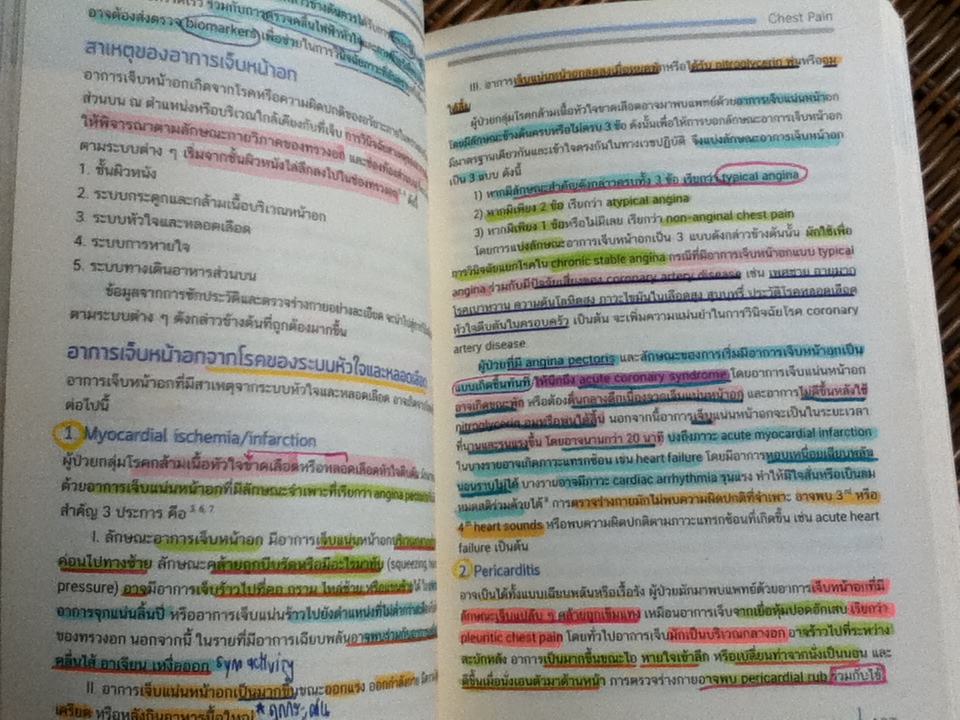 อาจต้องส่งตรวจ biomarkers เพื่อช่วยในการวินิจฉัยภาวะ
สาเหตุของอาการเจ็บหน้าอก
อาการเจ็บหน้าอกเกิดจากโรคหรือความผิดปกติของอวัยวะภายใน
ส่วนบน ณ ตำแหน่งหรือบริเวณใกล้เคียงกับที่เจ็บ การวินิจฉัย
ให้พิจารณาตามลักษณะกายวิภาคของทรวงอก และช่องท้องส่วนบน
ตามระบบต่าง ๆ เริ่มจากชั้นผิวหนังไล่ลึกลงไปในช่องทรวงอก
1. ชั้นผิวหนัง
2. ระบบกระดูกและกล้ามเนื้อบริเวณหน้าอก
3. ระบบหัวใจและหลอดเลือด
4. ระบบการหายใจ
5. ระบบทางเดินอาหารส่วนบน
ข้อมูลจากการซักประวัติและตรวจร่างกายอย่างละเอียด
ตามระบบต่าง ๆ ดังกล่าวข้างต้นที่ถูกต้องมากขึ้น
อาการเจ็บหน้าอกจากโรคของระบบหัวใจและหลอดเลือด
อาการเจ็บหน้าอกที่มีสาเหตุจากระบบหัวใจและหลอดเลือด
ต่อไปนี้
1 Myocardial ischemia/infarction
ผู้ป่วยกลุ่มโรคกล้ามเนื้อหัวใจขาดเลือดหรือหลอดเลือดหัวใจตีบตัน
ด้วยอาการเจ็บแน่นหน้าอกที่มีลักษณะจำเพาะที่เรียกว่า angina
สำคัญ 3 ประการ คือ 5, 6, 7
I. ลักษณะอาการเจ็บแน่นหน้าอก มีอาการเจ็บแน่นหน้าอก
ค่อนไปทางซ้าย ลักษณะคล้ายถูกบีบรัดหรือมีอะไรมาทับ (squeezing
pressure) อาจมีอาการเจ็บร้าวไปที่คอ กราม ไหล่ซ้าย หรือแขนซ้าย
อาการจุกแน่นลิ้นปี่ หรืออาการเจ็บแน่นร้าวไปยังตำแหน่งที่ไม่ต่ำกว่า
ของทรวงอก นอกจากนี้ ในรายที่มีอาการเฉียบพลันอาจพบร่วมกับอาการ
คลื่นไส้ อาเจียน เหงื่อออก
II. อาการเจ็บแน่นหน้าอกเป็นมากขึ้นขณะออกแรง ออกกำลังกาย
เครียด หรือหลังกินอาหารมื้อใหญ่
Chest Pain
III. อาการเจ็บแน่นหน้าอกลดลงเมื่อหยุดพักหรือได้รับ nitroglycerin พ่นหรืออม
ใต้ลิ้น
ผู้ป่วยกลุ่มโรคกล้ามเนื้อหัวใจขาดเลือดอาจมาพบแพทย์ด้วยอาการเจ็บแน่นหน้าอก
โดยมีลักษณะข้างต้นครบหรือไม่ครบ 3 ข้อ ดังนั้นเพื่อให้การบอกลักษณะอาการเจ็บหน้าอก
มีมาตรฐานเดียวกันและเข้าใจตรงกันในทางเวชปฏิบัติ จึงแบ่งลักษณะอาการเจ็บหน้าอก
เป็น 3 แบบ ดังนี้
1) หากมีลักษณะสำคัญดังกล่าวครบทั้ง 3 ข้อ เรียกว่า typical angina
2) หากมีเพียง 2 ข้อ เรียกว่า atypical angina
3) หากมีเพียง 1 ข้อหรือไม่มีเลย เรียกว่า non-anginal chest pain
โดยการแบ่งลักษณะอาการเจ็บหน้าอกเป็น 3 แบบดังกล่าวข้างต้นนั้น มักใช้เพื่อ
การวินิจฉัยแยกโรคใน chronic stable angina กรณีที่มีอาการเจ็บหน้าอกแบบ typical
angina ร่วมกับมีปัจจัยเสี่ยงของ coronary artery disease เช่น เพศชาย อายุมาก
โรคเบาหวาน ความดันโลหิตสูง ภาวะไขมันในเลือดสูง สูบบุหรี่ ประวัติโรคหลอดเลือด
หัวใจตีบตันในครอบครัว เป็นต้น จะเพิ่มความแม่นยำในการวินิจฉัยโรค coronary
artery disease
ผู้ป่วยที่มี angina pectoris และลักษณะของการเริ่มมีอาการเจ็บหน้าอกเป็น
แบบเกิดขึ้นทันที ให้นึกถึง acute coronary syndrome โดยอาการเจ็บแน่นหน้าอก
อาจเกิดขณะพัก หรือต้องตื่นกลางดึกเนื่องจากเจ็บแน่นหน้าอก และอาการไม่ดีขึ้นหลังใช้
nitroglycerin อมหรือพ่นใต้ลิ้น นอกจากนี้อาการเจ็บแน่นหน้าอกจะเป็นในระยะเวลา
ที่นานและรุนแรงขึ้น โดยอาจนานกว่า 20 นาที บ่งถึงภาวะ acute myocardial infarction
ในบางรายอาจเกิดภาวะแทรกซ้อน เช่น heart failure โดยมีอาการหอบเหนื่อยเฉียบพลัน
นอนราบไม่ได้ บางรายอาจมีภาวะ cardiac arrhythmia รุนแรง ทำให้มีใจสั่นหรือเป็นลม
หมดสติร่วมด้วยได้ การตรวจร่างกายมักไม่พบความผิดปกติที่จำเพาะ อาจพบ 3rd หรือ
4th heart sounds หรือพบความผิดปกติตามภาวะแทรกซ้อนที่เกิดขึ้น เช่น acute heart
failure เป็นต้น
2 Pericarditis
อาจเป็นได้ทั้งแบบเฉียบพลันหรือเรื้อรัง ผู้ป่วยมักมาพบแพทย์ด้วยอาการเจ็บหน้าอกที่มี
ลักษณะเจ็บแปลบ ๆ คล้ายถูกเข็มแทง เหมือนอาการเจ็บจากเยื่อหุ้มปอดอักเสบ เรียกว่า
pleuritic chest pain โดยทั่วไปอาการเจ็บมักเป็นบริเวณกลางอก อาจร้าวไปที่ระหว่าง
สะบักหลัง อาการเป็นมากขึ้นขณะไอ หายใจเข้าลึก หรือเปลี่ยนท่าจากนั่งเป็นนอน และ
ดีขึ้นเมื่อนั่งเอนตัวมาด้านหน้า การตรวจร่างกายอาจพบ pericardial rub ร่วมกับไข้